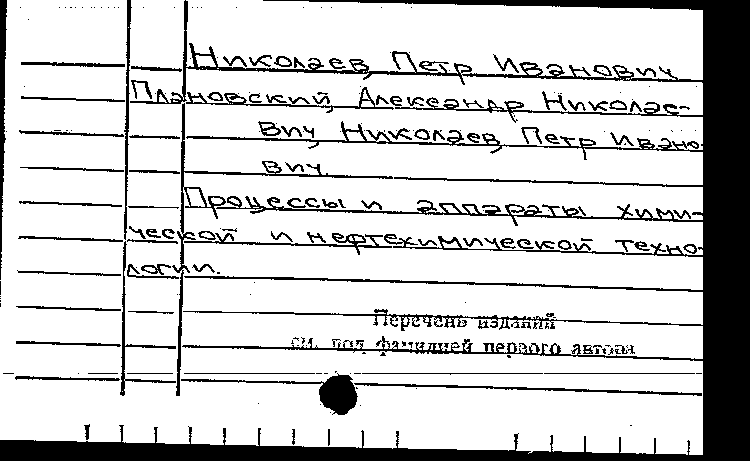 Николаев, Петр Иванович
Плановский, Александр Николае-
вич, Николаев, Петр Ивано-
вич.
Процессы и аппараты хими-
ческой и нефтехимической техно-
логии.
Перечень изданий
см. под фамилией первого автора